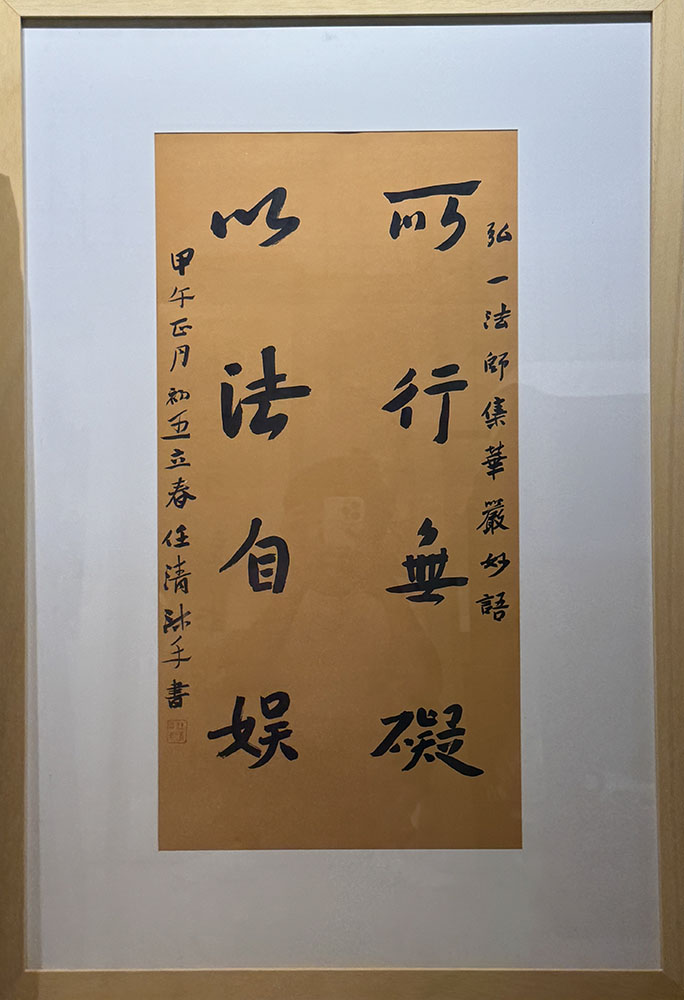 弘一法師集華嚴妙語
所行無礙
以法自娛
甲午正月初五立春任清沐手書